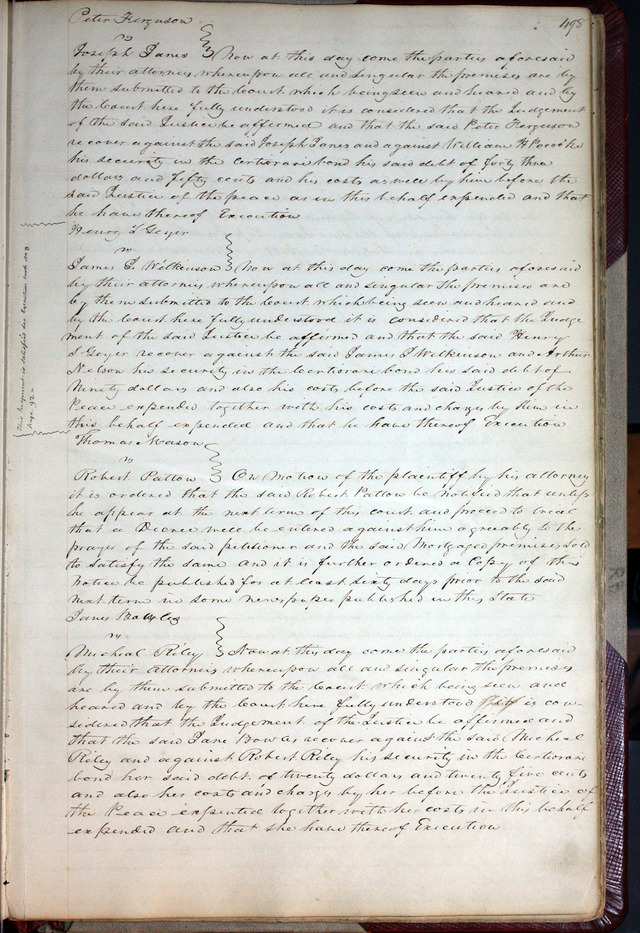 498
Peter Ferguson
vs
Joseph Janes } Now at this day come the parties aforesaid
by their attornies whereupon all and singular the premises are by
them submitted to the Court which being seen and heard and by
the Court here fully understood it is considered that the Judgement
of the said Justice be affirmed and that the said Peter Ferguson
recover against the said Joseph Janes and against William H Pococke
his security in the Certiorari bond his said debt of forty three
dollars and fifty cents and his costs as well by him before the
said Justice of the peace as in this behalf expended and that
he have thereof Execution
Henry S Geyer
vs
James S. Wilkinson } Now at this day come the parties aforesaid
by their attornies whereupon all and singular the premises are
by them submitted to the Court which being seen and heard and
by the Court here fully understood it is considered that the Judge
ment of the said Justice be affirmed and that the said Henry
S Geyer recover against the said James S Wilkinson and Arthur
Nelson his security in the Certiorari bond his said debt of
Ninety dollars and also his costs before the said Justice of the
Peace expended together with his costs and charges by him in
this behalf expended and that he have thereof Execution
This Judgment is satisfied see Execution book No 3
page 92
Thomas Mason
vs
Robert Patton } On motion of the plaintiff by his attorney
it is ordered that the said Robert Patton be notified that unless
he appear at the next term of this court and proceed to trial
that a Decree will be entered against him agreeably to the
prayer of the said petitioner and the said Mortgaged premises sold
to satisfy the same and it is further ordered a Copy of this
notice be published for at least sixty days prior to the said
next term in some newspaper published in this State
James Bowles
vs
Micheal Riley } Now at this day come the parties aforesaid
by their attornies whereupon all and singular the premises
are by them submitted to the Court which being seen and
heard and by the Court here fully understood it is con-
sidered that the Judgement of the Justice be affirmed and
that the said Jane Bowles recover against the said Micheal
Riley and against Robert Riley his security in the Certiorari
bond her said debt of twenty dollars and twenty five cents
and also her costs and charges by her before the Justice of
the Peace expended together with her costs in this behalf
expended and that she have thereof Execution